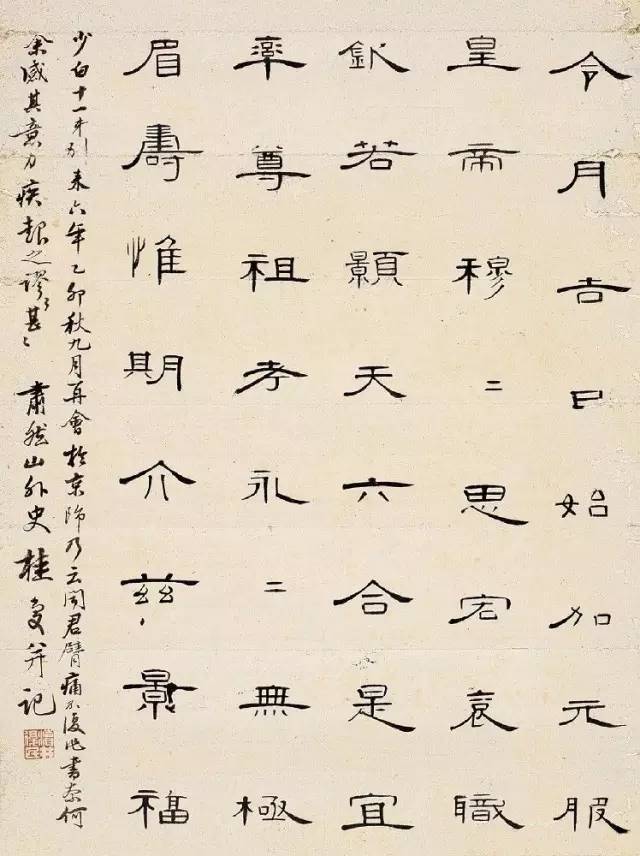 令月吉日始加元服
皇帝穆二思宏袞職
欽若顥天六合是宜
率尊祖考永二無極
眉壽惟期介茲景福
少白十一弟別來六年乙卯秋九月再會於京師乃云聞君臂痛不復作書奈何
余感其意力疾報之謬〻甚〻 肅然山外史桂馥并記